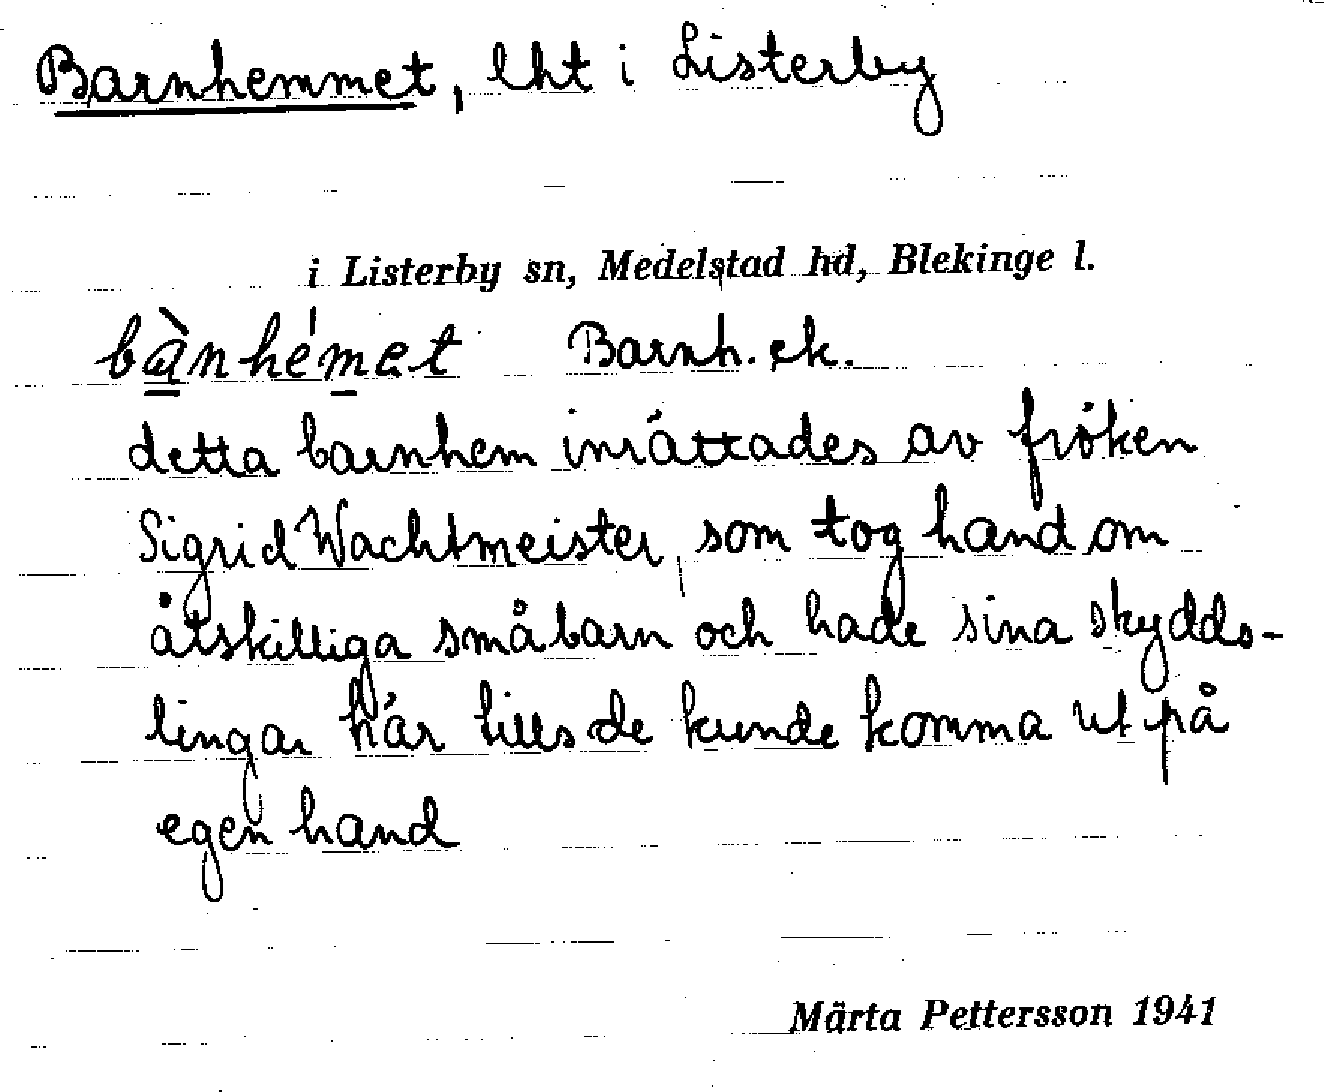 Barnhemmet, lht i Listerby
i Listerby sn, Medelstad hd, Blekinge l.
bànhémet Barnh. ek.
detta barnhem inrättades av fröken
Sigrid Wachtmeister, som tog hand om
åtskilliga småbarn och hade sina skydds-
lingar här tills de kunde komma ut på
egen hand
Märta Pettersson 1941